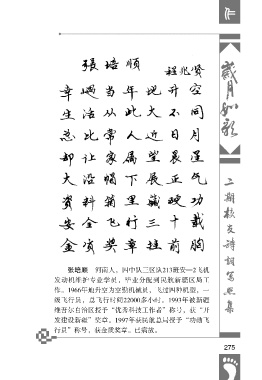 張培順
程兆贤
幸遇当年地升空
生活从此大不同
总比常人近日月
却让家属望晨星
大沿帽下展正气
资料箱里藏硬功
安全飞行三十载
金奖章挂前胸
张培顺 河南人。四中队三区队213班安—2飞机
发动机维护专业学员，毕业分配到民航新疆区局工
作。1966年地升空为空勤机械员，飞过四种机型，一
级飞行员，总飞行时间22000多小时。1993年被新疆
维吾尔自治区授予“优秀科技工作者”称号，获“开
发建设新疆”奖章。1997年获民航总局授予“功勋飞
行员”称号，获金质奖章。已病故。
岁月如歌
二期校友诗词写照集
275